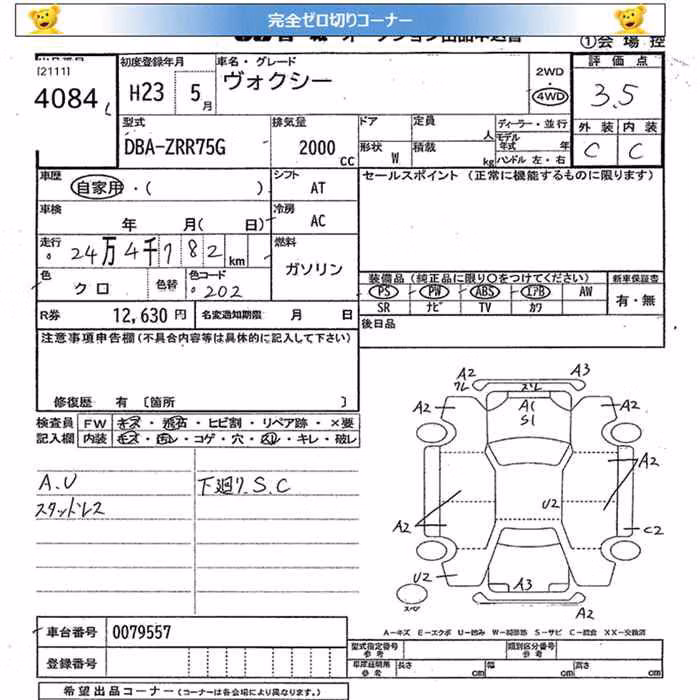 完全ゼロ切りコーナー
①会 場 控
[2111]
4084
初度登録年月
H23 5月
車名・グレード
ヴォクシー
2WD
・
4WD
評 価 点
3.5
外 装 内 装
C C
型式
DBA-ZRR75G
排気量
2000 cc
ドア 定員 人
形状 W 積載 kg
ディーラー・並行
モデル年式 年
ハンドル 左・右
車歴
自家用・( )
シフト
AT
セールスポイント (正常に機能するものに限ります)
車検
年 月( 日)
冷房
AC
走行
24万4千782km
燃料
ガソリン
色
クロ
色替
色コード
202
装備品(純正品に限り○をつけてください)
新車保証書
PS PW ABS エアB AW
SR ナビ TV カワ
有・無
R券 12,630 円 名変通知期限 月 日
後日品
注意事項申告欄(不具合内容等は具体的に記入して下さい)
修復歴 有 〔箇所 〕
検査員記入欄
FW キズ・飛石・ヒビ割・リペア跡・×要
内装 キズ・汚レ・コゲ・穴・凹レ・キレ・破レ
A.U
スタッドレス
下廻り S.C
A2
クレ
ズレ
A3
A2
A1
S1
A2
A2
U2
A2
C2
U2
A3
A2
スペア
A−キズ E−エクボ U−凹み W−補修跡 S−サビ C−腐食 XX−交換済
車台番号 0079557
登録番号
型式指定番号
参考
類別区分番号
参考
車庫証明用
参考
長さ cm 幅 cm 高さ cm
希望出品コーナー (コーナーは各会場により異なります。)